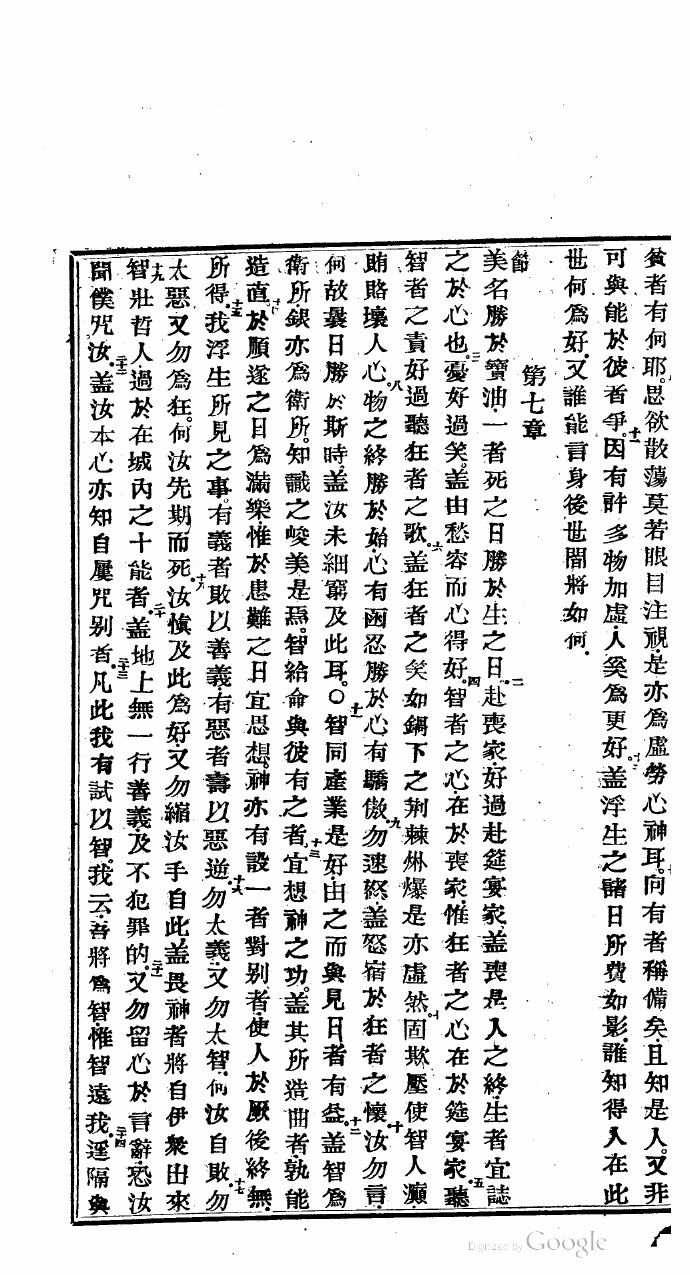 貧者有何耶思欲散蕩莫若眼目注視是亦為虛勞心神耳向有者稱備矣且知是人又非
可與能於彼者爭十一因有許多物加虛人奚為更好十二蓋浮生之諸日所費如影誰知得人在此
世何為好又誰能言身後世間將如何
第七章
節美名勝於寶油一者死之日勝於生之日二赴喪家好過赴筵宴家蓋喪是人之終生者宜誌
之於心也三憂好過笑蓋由愁容而心得好四智者之心在於喪家惟狂者之心在於筵宴家五聽
智者之責好過聽狂者之歌六蓋狂者之笑如鍋下之荊棘爆是亦虛然七固欺壓使智人癲
賄賂壞人心八物之終勝於始心有函忍勝於心有驕傲九勿速怒蓋怒宿於狂者之懷十汝勿言
何故曩日勝於斯時蓋汝未細窮及此耳〇十一智同產業是好由之而與見日者有益十二蓋智為
衛所銀亦為衛所知識之峻美是焉智給命與彼有之者十三宜想神之功蓋其所造曲者孰能
造直十四於順遂之日為滿樂惟於患難之日宜思想神亦有設一者對別者使人於厥後終無
所得十五我浮生所見之事有義者敗以善義有惡者壽以惡逆十六勿太義又勿太智何汝自敗十七勿
太惡又勿為狂何汝先期而死十八汝慎及此為好又勿縮汝手自此蓋畏神者將自伊衆出來
十九智壯哲人過於在城內之十能者二十蓋地上無一行善義及不犯罪的二十一又勿留心於言辭恐汝
聞僕咒汝二十二蓋汝本心亦知自屢咒別者二十三凡此我有試以智我云吾將為智惟智遠我二十四遥隔與
Digitized by Google